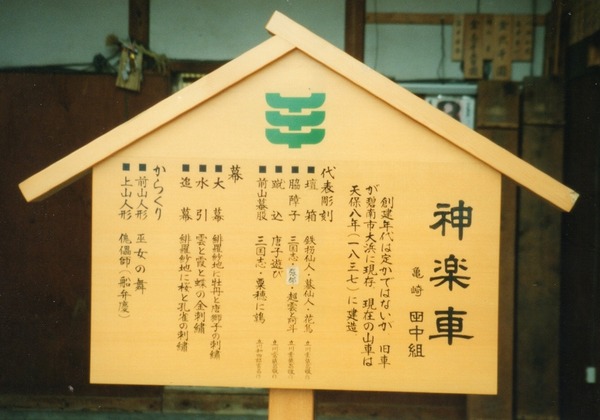 神楽車
亀崎 田中組
創建年代は定かではないが 旧車
が碧南市大浜に現存 現在の山車は
天保八年(一八三七)に建造
代表彫刻
■壇箱 鉄拐仙人・蟇仙人・花鳥
■脇障子 三国志・趙雲与阿斗
■蹴込 唐子遊び
■前山蟇股 三国志・粟穂に鶉
幕
■大幕 緋羅紗地に牡丹と唐獅子の刺繍
■水引 雲と霞と蝶の金刺繍
■追幕 緋羅紗地に桜と孔雀の刺繍
からくり
■前山人形 巫女の舞
■上山人形 傀儡師(船弁慶)